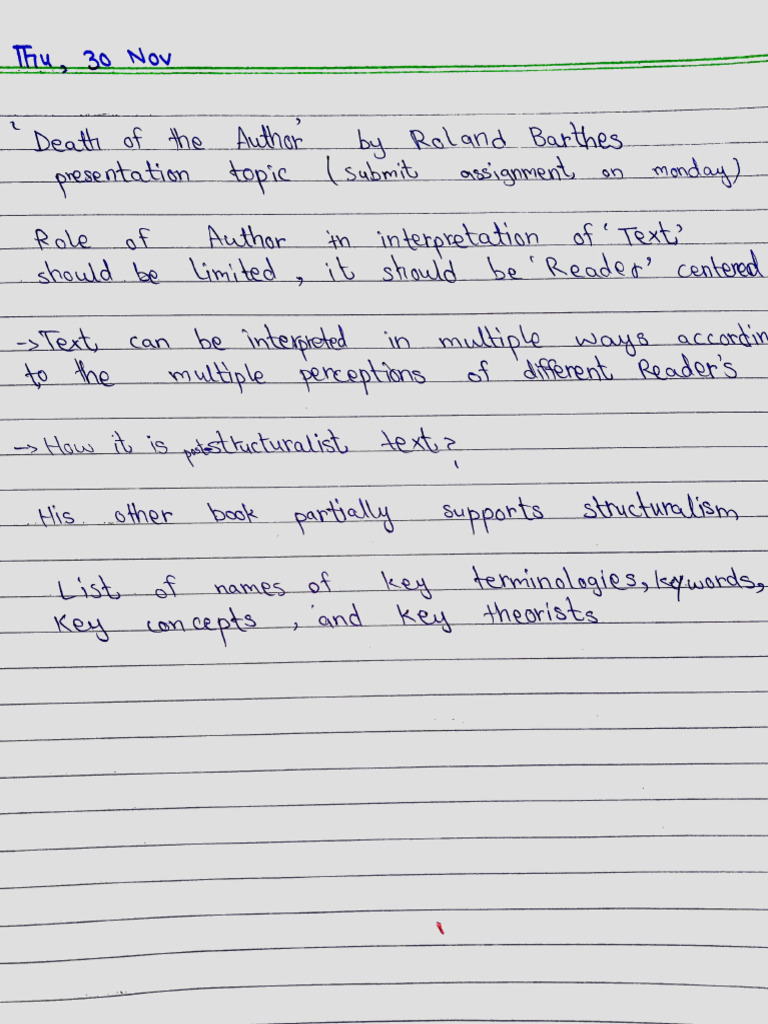 Thu, 30 Nov
'Death of the Author' by Roland Barthes
presentation topic (submit assignment on monday)
Role of Author in interpretation of 'Text'
should be limited, it should be 'Reader' centered
→ Text can be interpreted in multiple ways accordin
to the multiple perceptions of different Reader's
→ How it is poststructuralist text?
His other book partially supports structuralism
List of names of key terminologies, keywords,
key concepts, and key theorists